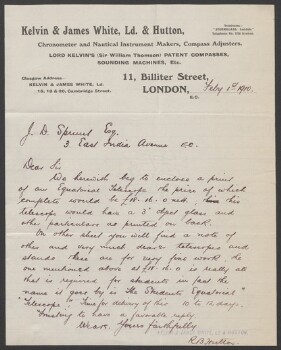 Kelvin & James White, Ld. & Hutton,
Chronometer and Nautical Instrument Makers, Compass Adjusters.
LORD KELVIN'S (Sir William Thomson) PATENT COMPASSES,
SOUNDING MACHINES, Etc.
Glasgow Address—
KELVIN & JAMES WHITE, LD.
16, 18 & 20, Cambridge Street.
11, Billiter Street,
LONDON,
E.C.
Feby 1st 1910.
J. D. Esq.
3 East India Avenue E.C.
Dear Sir
We herewith beg to enclose a print
of an Equatorial Telescope the price of which
complete would be £18.18.0 nett. this
telescope would have a 3" object glass and
other particulars as printed on back.
On other sheet you will find a note of
other and very much dearer telescopes and
stands these are for very fine work. the
one mentioned above at £18.18.0 is really all
that is required for students in fact the
name it goes by is The Students Equatorial
Telescope". Time for delivery of this 10 to 12 days.
Trusting to have a favorable reply
We are. Yours faithfully